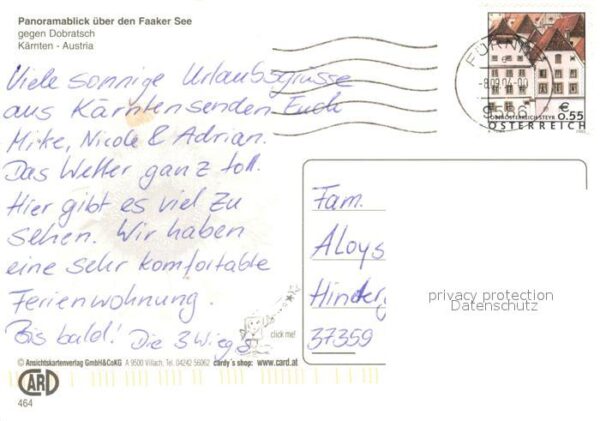 Panoramablick über den Faaker See
gegen Dobratsch
Kärnten · Austria
Viele sonnige Urlaubsgrüsse
aus Kärnten senden Euch
Mike, Nicole & Adrian.
Das Wetter ganz toll.
Hier gibt es viel zu
sehen. Wir haben
eine sehr komfortable
Ferienwohnung.
Bis bald! Die 3 Wiegs
click me!
© Ansichtskartenverlag GmbH&CoKG A 9500 Villach, Tel. 04242 56062 cardy's shop: www.card.at
CARD
464
FÜRNITZ
-8.09.04-00
9586
€
0.55
OBERÖSTERREICH STEYR
ÖSTERREICH
Fam.
Aloys
37359
privacy protection
Datenschutz